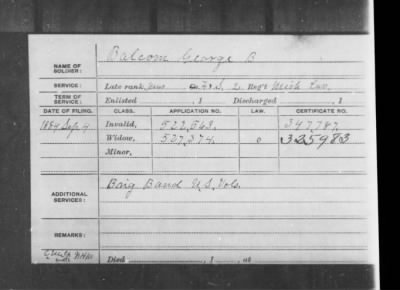 NAME OF SOLDIER: Balcom George B
SERVICE: Late rank, Mus F&S. 2 Reg't Mich Cav.
TERM OF SERVICE: Enlisted , 1 Discharged , 1
DATE OF FILING. CLASS. APPLICATION NO. LAW. CERTIFICATE NO.
1884 Sep. 4 Invalid, 522.563. 347.787
Widow, 537.374. o 325983
Minor,
ADDITIONAL SERVICES: Brig Band U.S. Vols.
REMARKS:
Died , 1 , at